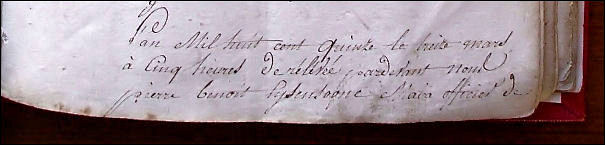 L'an Mil huit cent quinze le trente mars
à Cinq heures de rélévé pardevant nous
pierre benoit Maire officier de